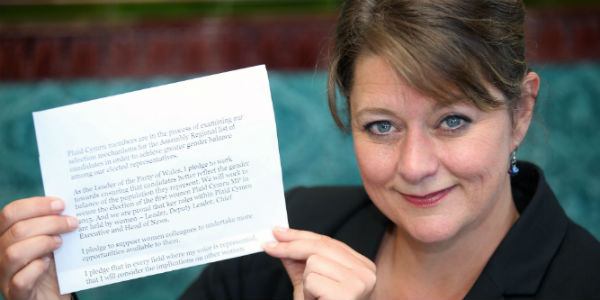 Plaid Cymru members are in the process of examining our
selection mechanisms for the Assembly Regional list of
candidates in order to achieve greater gender balance
among our elected representatives.
As the Leader of the Party of Wales, I pledge to work
towards ensuring that candidates better reflect the gender
balance of the population they represent. We will work to
secure the election of the first women Plaid Cymru MP in
2015. And we are proud that key roles within Plaid Cymru
are held by women – Leader, Deputy Leader, Chief
Executive and Head of News.
I pledge to support women colleagues to undertake more
opportunities available to them.
I pledge that in every field where my voice is represented,
that I will consider the implications on other women.